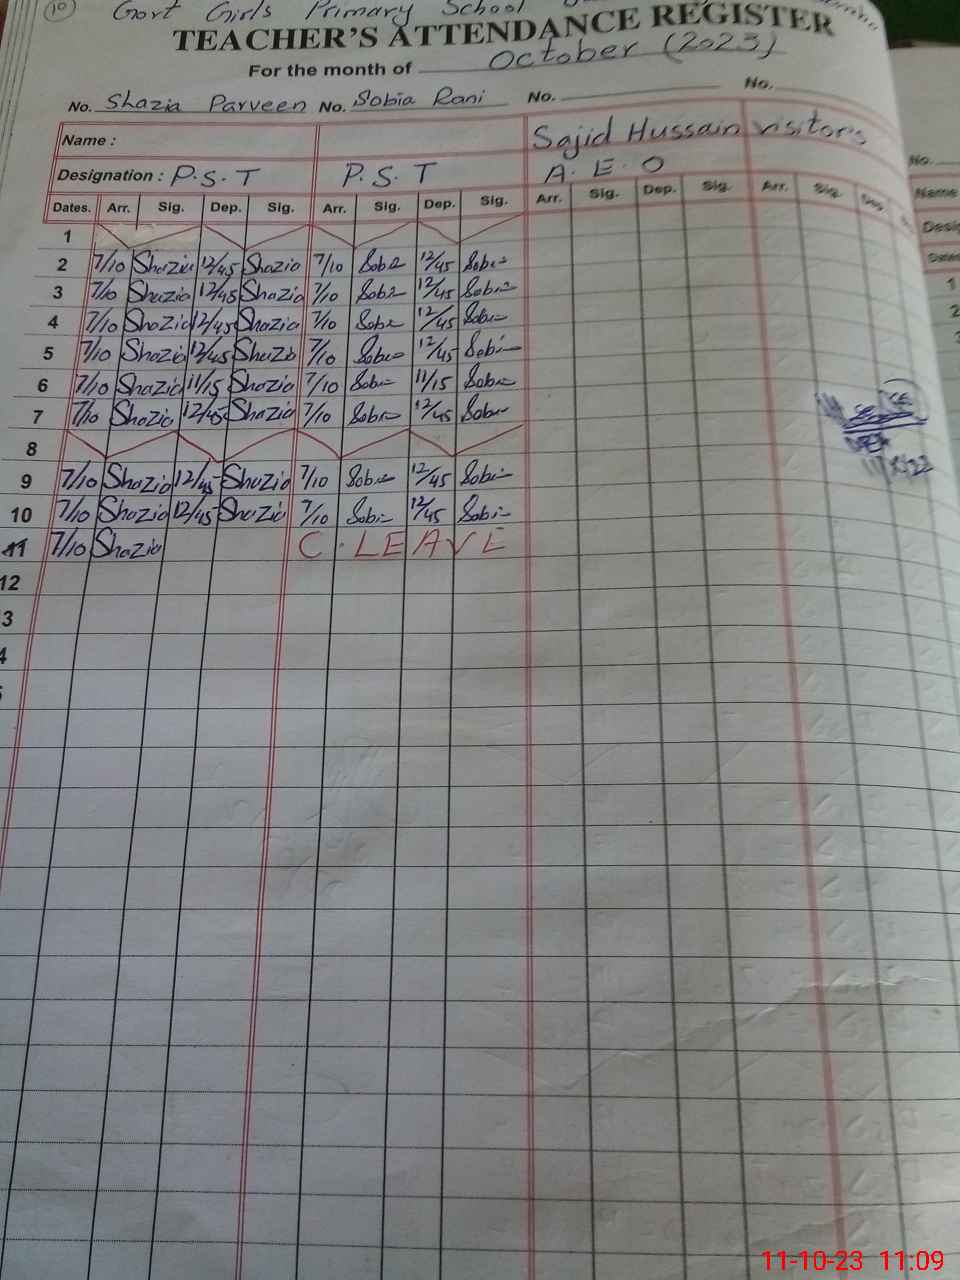 10 Govt Girls Primary School
TEACHER'S ATTENDANCE REGISTER
For the month of October (2023)
No. Shazia Parveen No. Sobia Rani No. No.
Name : Sajid Hussain visitors
Designation : P.S.T P.S.T A.E.O
Dates. Arr. Sig. Dep. Sig. Arr. Sig. Dep. Sig. Arr. Sig. Dep. Sig. Arr. Sig. Dep.
1
2 7/10 Shazia 12/45 Shazia 7/10 Sobia 12/45 Sobia
3 7/10 Shazia 12/45 Shazia 7/10 Sobia 12/45 Sobia
4 7/10 Shazia 12/45 Shazia 7/10 Sobia 12/45 Sobia
5 7/10 Shazia 12/45 Shazia 7/10 Sobia 12/45 Sobia
6 7/10 Shazia 11/15 Shazia 7/10 Sobia 11/15 Sobia
7 7/10 Shazia 12/45 Shazia 7/10 Sobia 12/45 Sobia
8
9 7/10 Shazia 12/45 Shazia 7/10 Sobia 12/45 Sobia
10 7/10 Shazia 12/45 Shazia 7/10 Sobia 12/45 Sobia
11 7/10 Shazia C.LEAVE
12
3
4
No.
Name
Desig
Dates
1
2
11-10-23 11:09